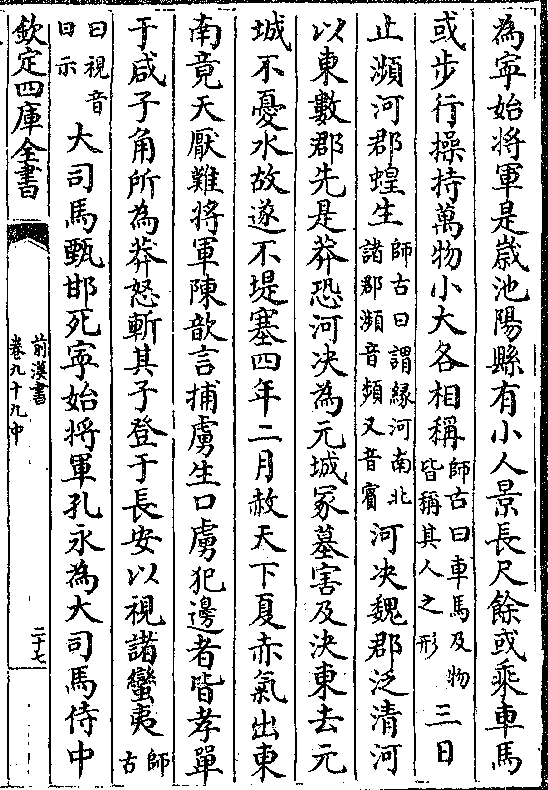 為寧始將軍是歲池陽縣有小人景長尺餘或乘車馬
或步行操持萬物小大各相稱師古曰車馬及物皆稱其人之形三日
止瀕河郡蝗生師古曰謂縁河南北諸郡瀕音頻又音賔河決魏郡泛清河
以東數郡先是莽恐河决為元城冢墓害及決東去元
城不憂水故遂不堤塞四年二月赦天下夏赤氣出東
南竟天厭難將軍陳歆言捕虜生口虜犯邊者皆孝單
于咸子角所為莽怒斬其子登于長安以視諸蠻夷師古
曰視音曰示大司馬甄邯死寧始將軍孔永為大司馬侍中
欽定四庫全書
前漢書
卷九十九中
二十七